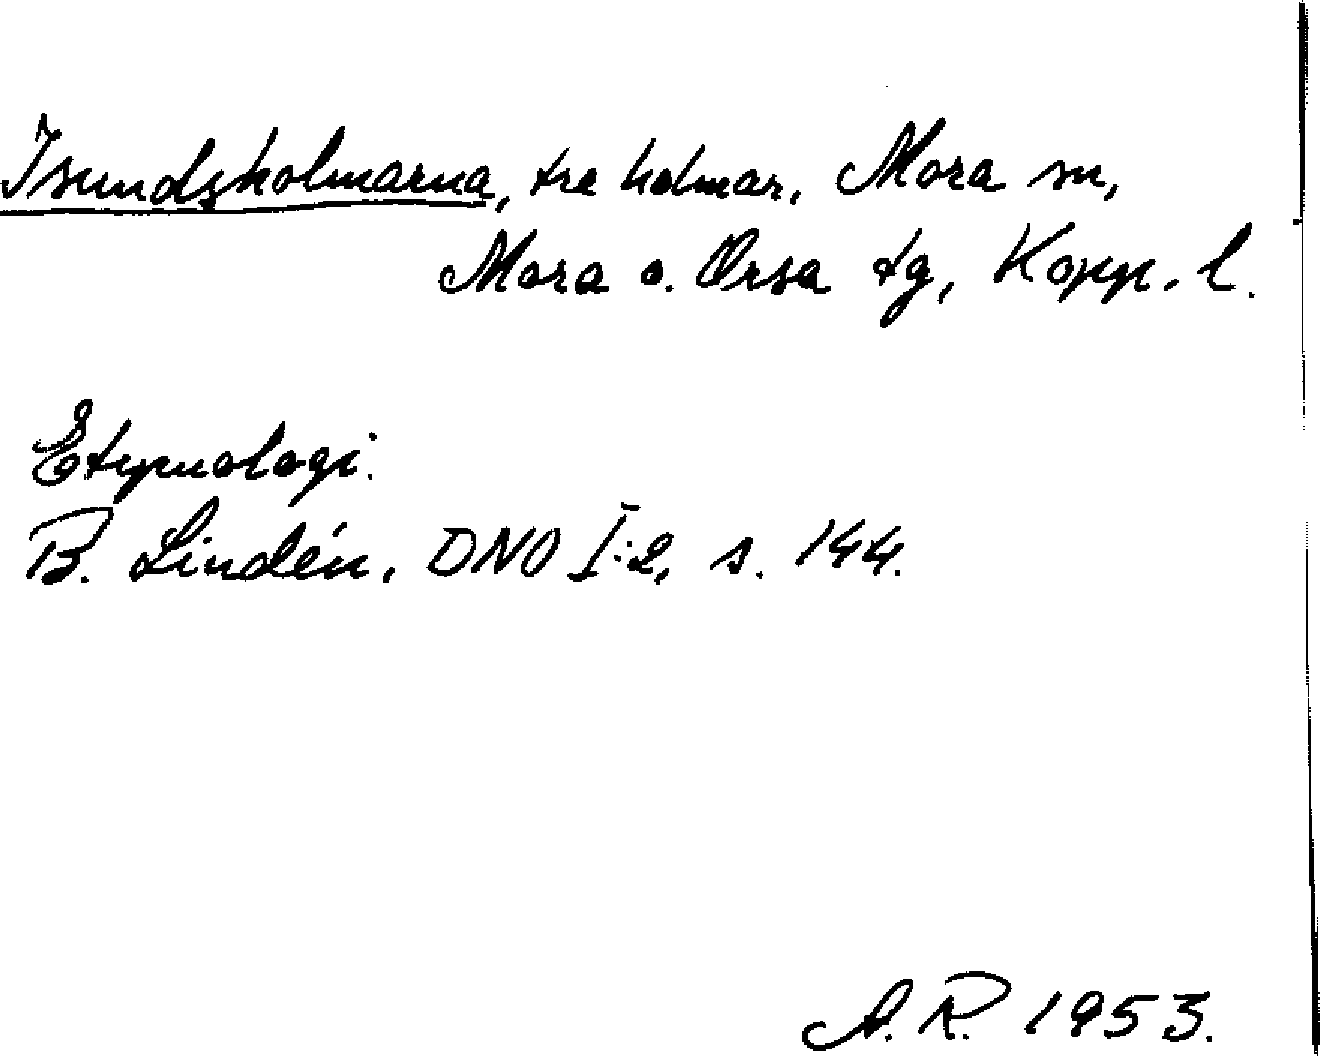 Isundsholmarna, tre holmar, Mora sn,
Mora o. Orsa tg, Kopp. l.
Etymologi.
B. Lindén, DNO I:2, s. 144.
A. R. 1953.